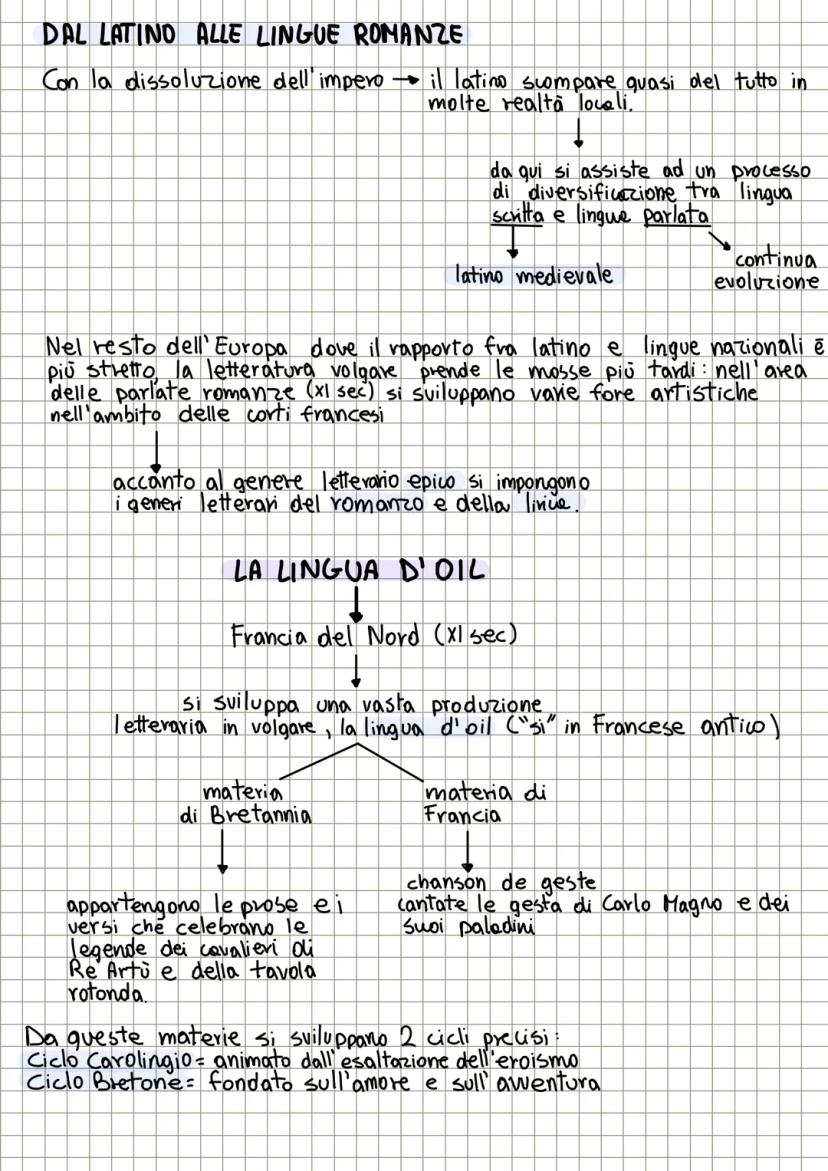 DAL LATINO ALLE LINGUE ROMANZE
Con la dissoluzione dell'impero → il latino scompare quasi del tutto in
molte realtà locali.
da qui si assiste ad un processo
di diversificazione tra lingua
scritta e lingua parlata
continua
evoluzione
latino medievale
Nel resto dell'Europa dove il rapporto fra latino e lingue nazionali è
più stretto, la letteratura volgare prende le mosse più tardi: nell'area
delle parlate romanze (XI sec) si sviluppano varie fore artistiche
nell'ambito delle corti francesi
accanto al genere letterario epico si impongono
i generi letterari del romanzo e della lirica.
LA LINGUA D'OIL
Francia del Nord (XI sec)
si sviluppa una vasta produzione
letteraria in volgare, la lingua d'oil ("si" in Francese antico)
materia
di Bretannia
materia di
Francia
appartengono le prose e i
versi che celebrano le
legende dei cavalieri di
Re Artù e della tavola
rotonda.
chanson de geste
cantate le gesta di Carlo Magno e dei
suoi paladini
Da queste materie si sviluppano 2 cicli precisi:
Ciclo Carolingio = animato dall'esaltazione dell'eroismo
Ciclo Bretone = fondato sull'amore e sull'avventura